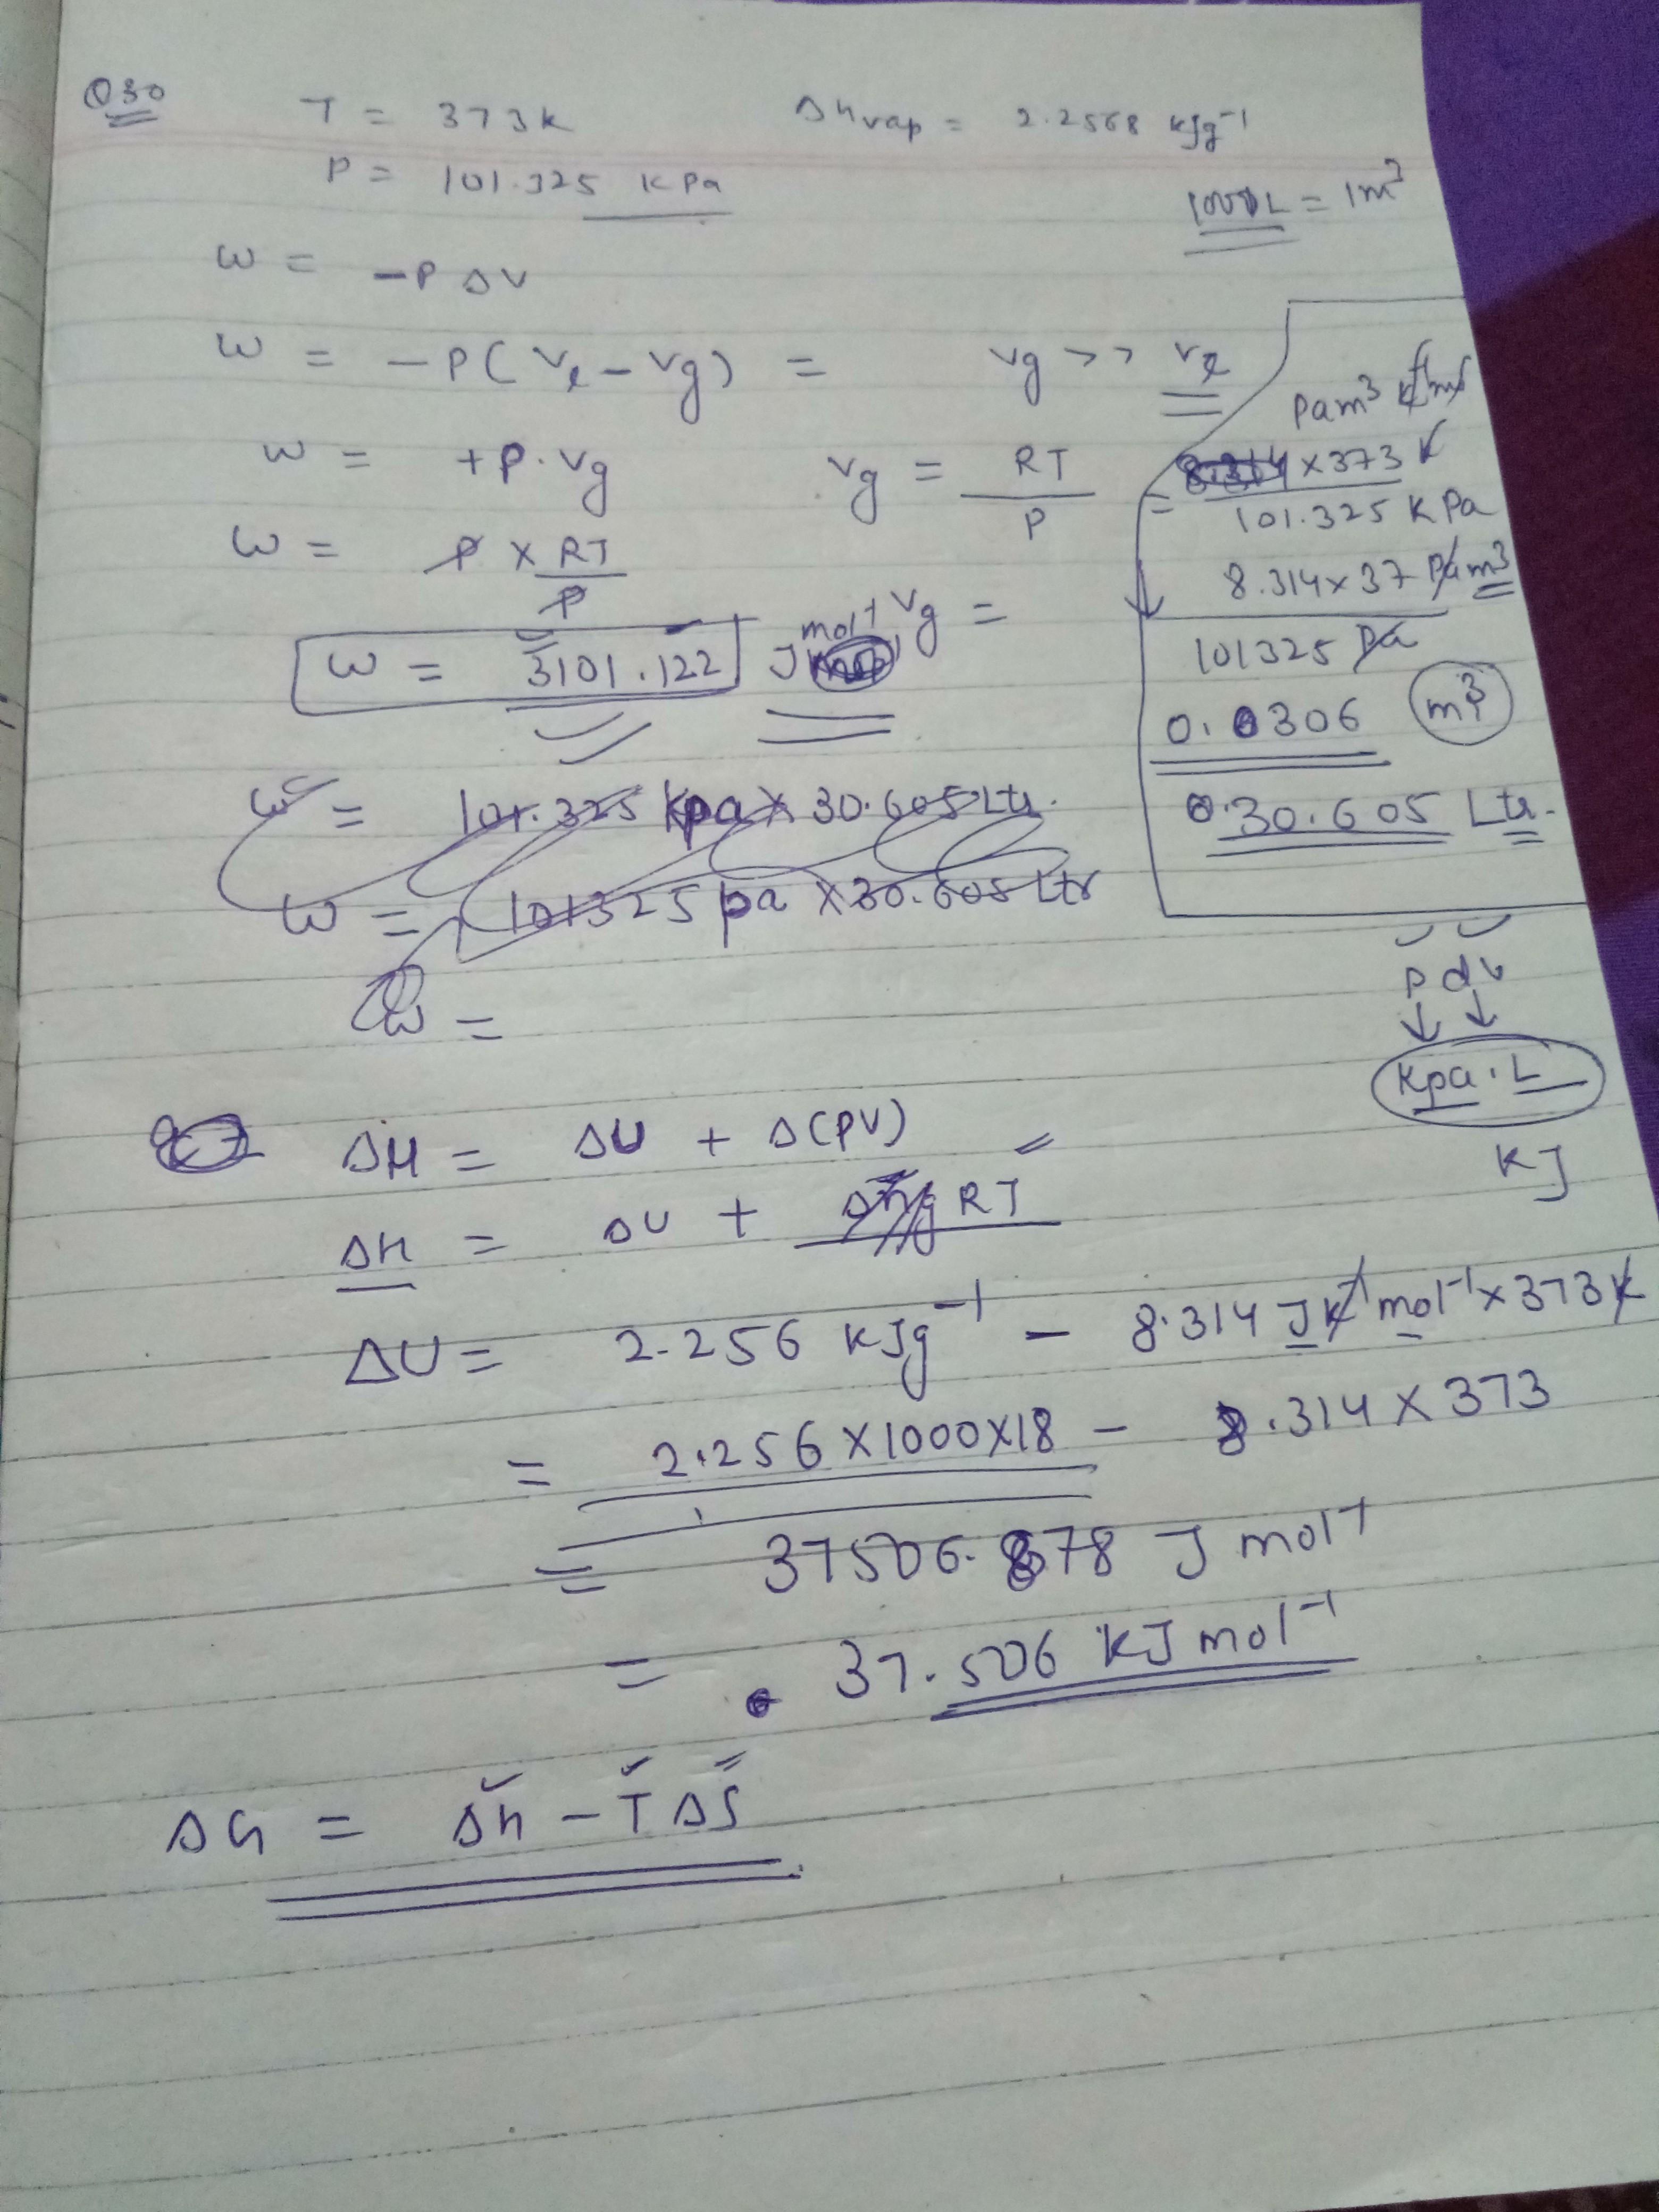 Q30 T = 373K Δhvap = 2.2568 kJg⁻¹
P = 101.325 KPa
1000L = 1m³
w = -P ΔV
w = -P(Vl - Vg) = Vg >> Vl
w = +P.Vg Vg = RT/P
w = P × RT/P
w = 3101.122 J mol⁻¹
Vg =
Pam³ K⁻¹
= 8.314 × 373 K
101.325 KPa
8.314 × 37 Pam³
101325 Pa
0.0306 m³
30.605 Ltr.
w = 101.325 kpa × 30.605 Ltr.
w = 101325 pa × 30.605 Ltr
w =
P dv
↓ ↓
Kpa.L
KJ
ΔH = ΔU + Δ(PV) =
ΔH = ΔU + Δng RT
ΔU = 2.256 KJg⁻¹ - 8.314 JK⁻¹ mol⁻¹ × 373K
= 2.256 × 1000 × 18 - 8.314 × 373
= 37506.878 J mol⁻¹
= 37.506 KJ mol⁻¹
ΔG = Δh - TΔS